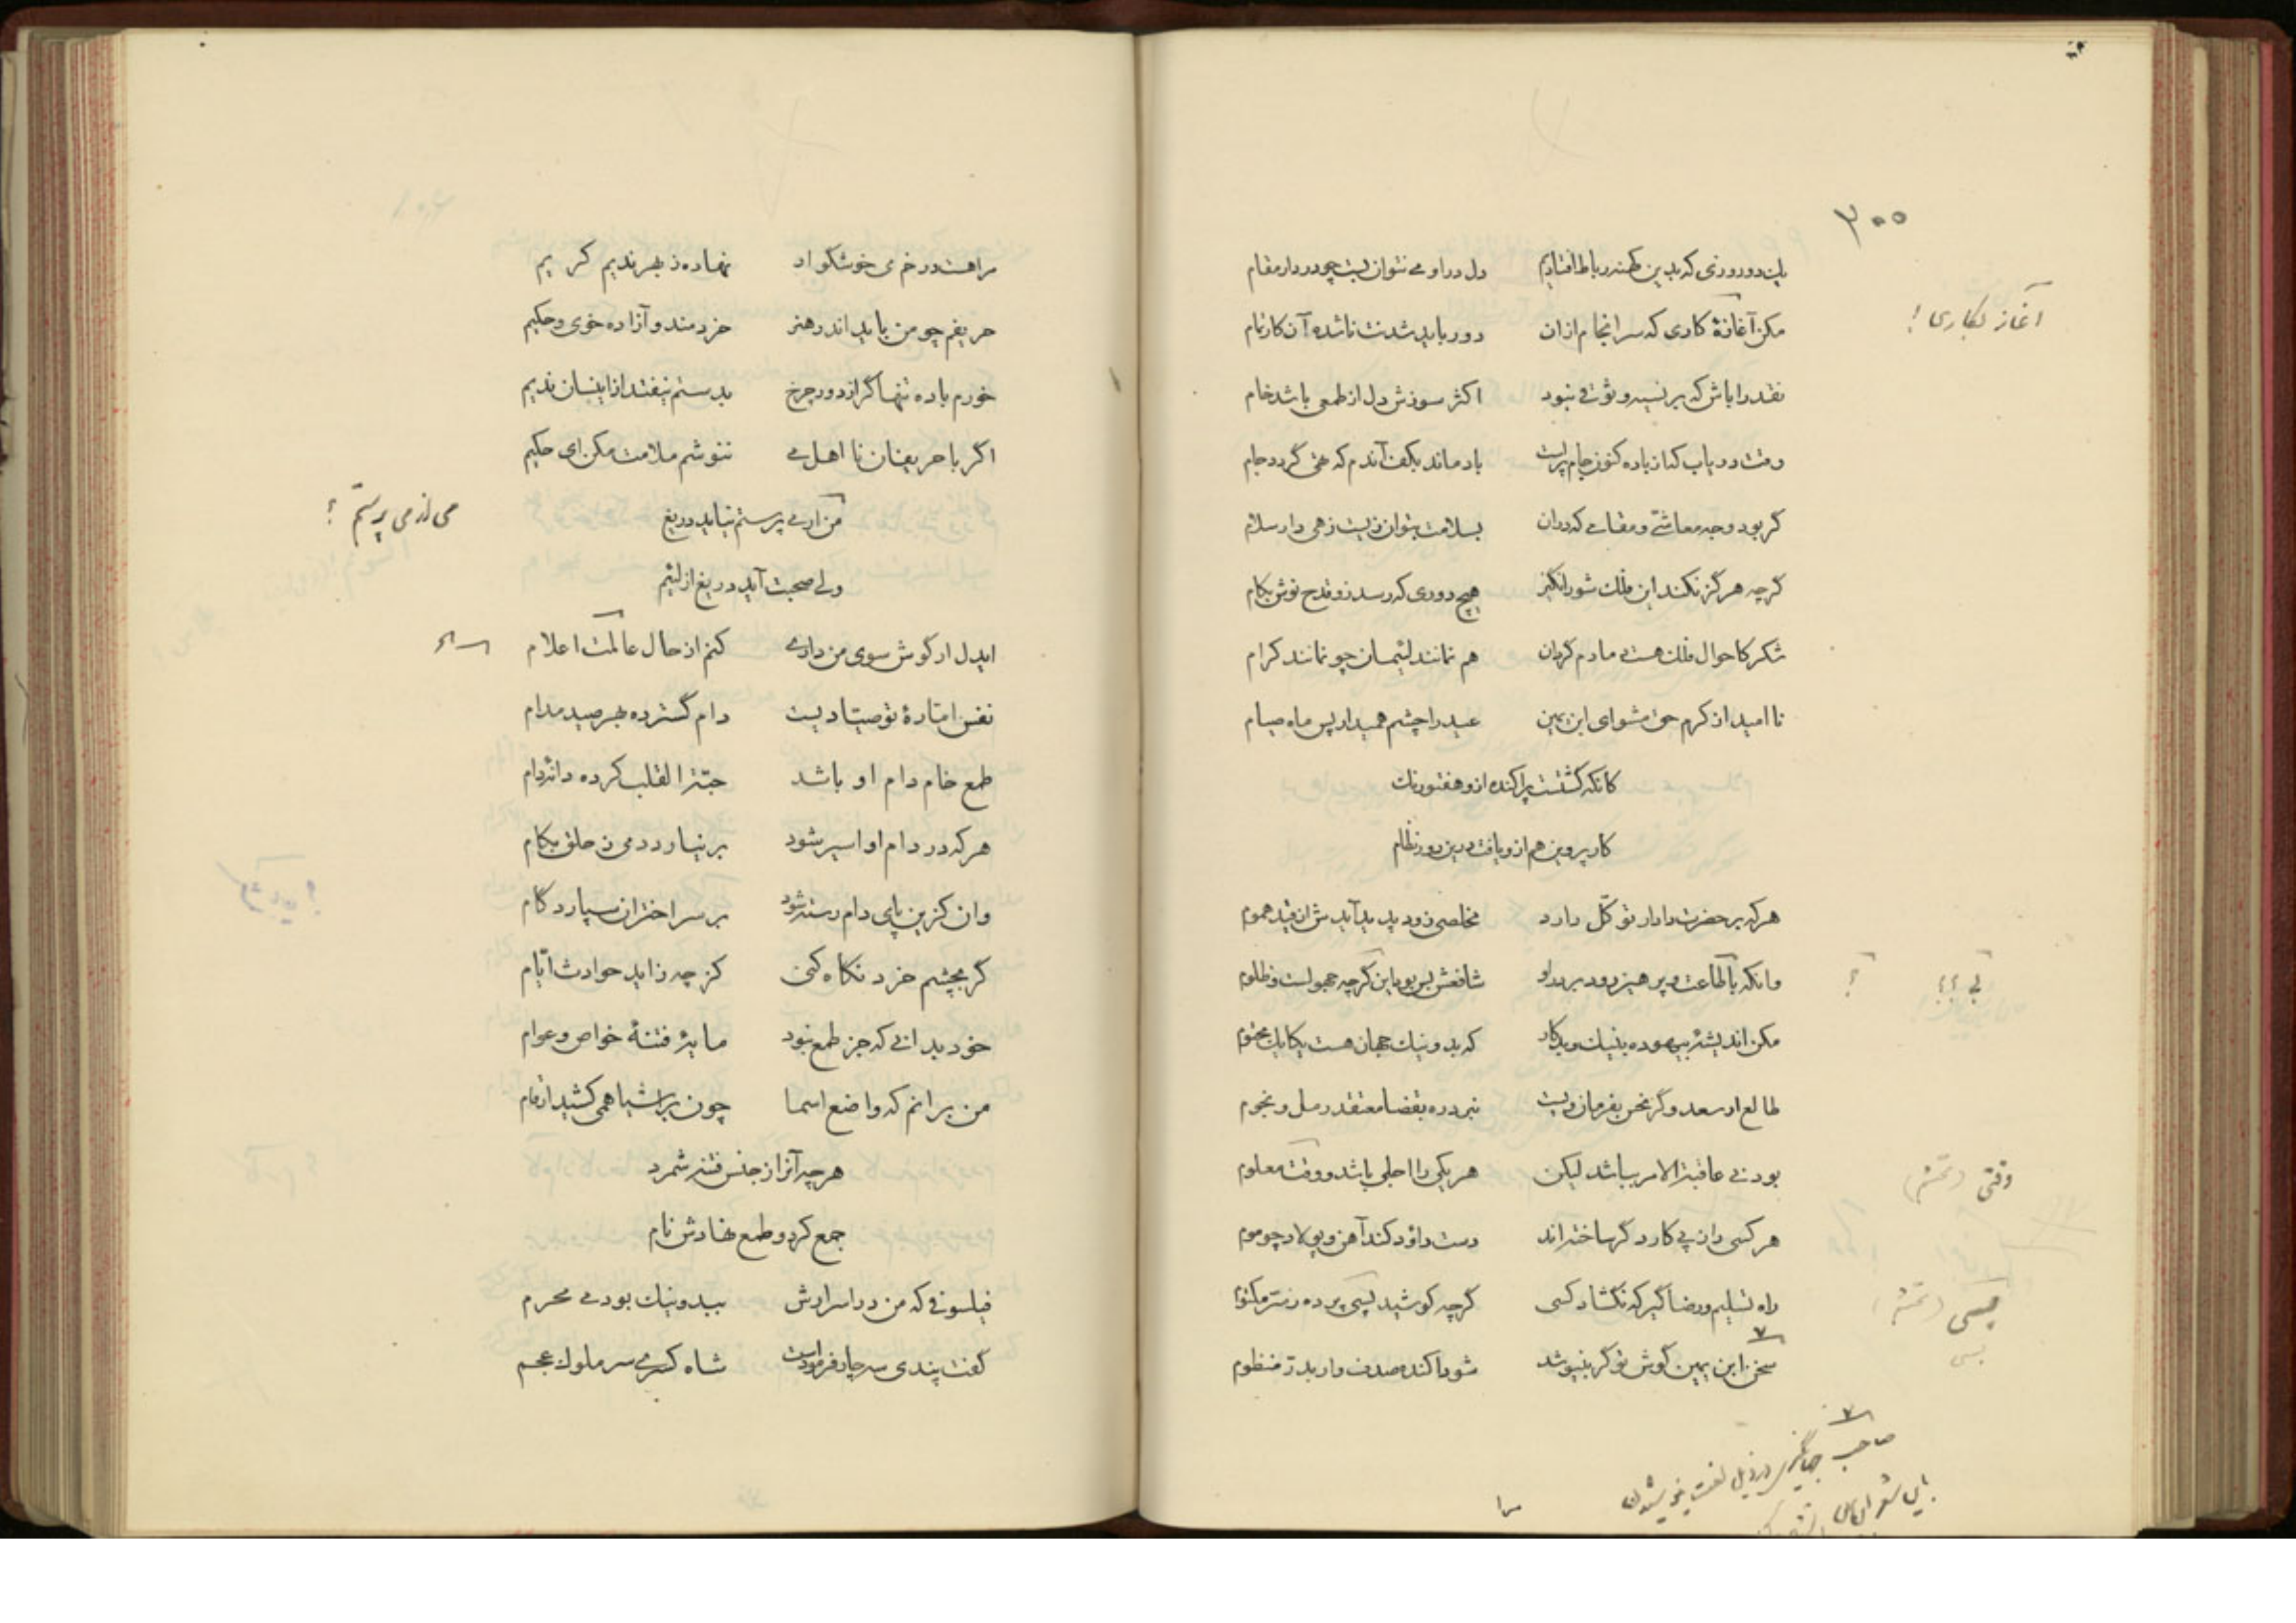 ۳۰۰
یک دو روزی که بدین کهنه رباط افتادیم دل درو می نتوان بست چو در دار مقام
آغاز بکاری !
مکن آغازۀ کاری که سرانجام از آن دور باید شدنت ناشده آن کار تمام
نقد را باش که بر نسیه وثوقی نبود اکثر سوزش دل از طمعی باشد خام
وقت دریاب کنون جام پرست باد ماند بکف آندم که تهی گردد جام
گر بود وجه معاشی و مقامی که در آن بسلامت بتوان زیست زهی دار سلام
گرچه هرگز نکند این فلک شورانگیز هیچ دوری که رسد زو قدح نوش بکام
شکر کاحوال فلک هست مادم گردان هم نمانند لئیمان چو نمانند کرام
ناامید از کرم حق مشو ای ابن یمین عید را چشم همیدار پس ماه صیام
کانکه گشتست پراکنده ازو هفتورنگ
کار پروین هم ازو یافت درین دور نظام
هرکه بر حضرت دادار توکّل دارد مخلصی زود پدید آیدش از قید هموم
وانکه با طاعت و پرهیز رود بر در او شافعش بس بود این گرچه جهولست و ظلوم
مکن اندیشۀ بیهوده بنیک و بد کار که بد و نیک جهان هست یکایک مختوم
طالع ار سعد و گر نحس بفرمان ویست نبرد ره بقضا معتقد رمل و نجوم
وقتی
بودنی عاقبة الامر بباشد لیکن هر یکی را اجلی باشد و وقت معلوم
هر کسی را ز پی کار دگر ساخته اند دست داود کند آهن و پولاد چو موم
راه تسلیم و رضا گیر که نگشاد کسی گرچه کوشید بسی پرده ز سرّ مکتوم
بسی
سخن ابن یمین گوش تو گر بنیوشد شود آکنده صدف وار بدرّ منظوم
صاحب جهانگیری در ذیل لغت نیوشیدن
مراهست در خم می خوشگوار نهاده ز بهر ندیم کریم
حریفم چو من باید اندر هنر خردمند و آزاده خوی و حکیم
خورم باده تنها گر از دور چرخ بدستم نیفتد ازینسان ندیم
اگر با حریفان نا اهل می ننوشم ملامت مکن ای حکیم
من ار می پرستم نیاید دریغ
ولی صحبت آید دریغ از لئیم
ایدل ار گوش سوی من داری کنم از حال عالمت اعلام
نفس امّارۀ تو صیّادیست دام گسترده بهر صید مدام
طمع خام دام او باشد حبّة القلب کرده دانۀ دام
هرکه در دام او اسیر شود بر نیارد دمی ز حلق بکام
وان کزین پای دام رسته شود بر سر اختران سپارد گام
گر بچشم خرد نگاه کنی کز چه زاید حوادث ایّام
خود بدانی که جز طمع نبود مایۀ فتنۀ خواص و عوام
من برانم که واضع اسما چون بر اشیا همی کشید ارقام
هرچه آنرا ز جنس فتنه شمرد
جمع کرد و طمع نهادش نام
فیلسوفی که من در اسرارش ببد و نیک بودمی محرم
گفت پندی سه چار فرمودست شاه کسری سر ملوک عجم